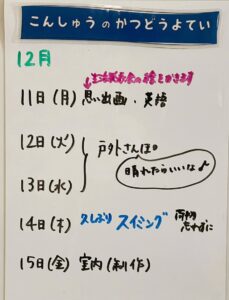 こんしゅうのかつどうよてい
12月
生活発表会の絵をかきます
11日(月) 思い出画・英語
12日(火)
戸外さんぽ
晴れたらいいな♪
13日(水)
14日(木) 久しぶり スイミング 荷物忘れずに
15日(金) 室内(制作)